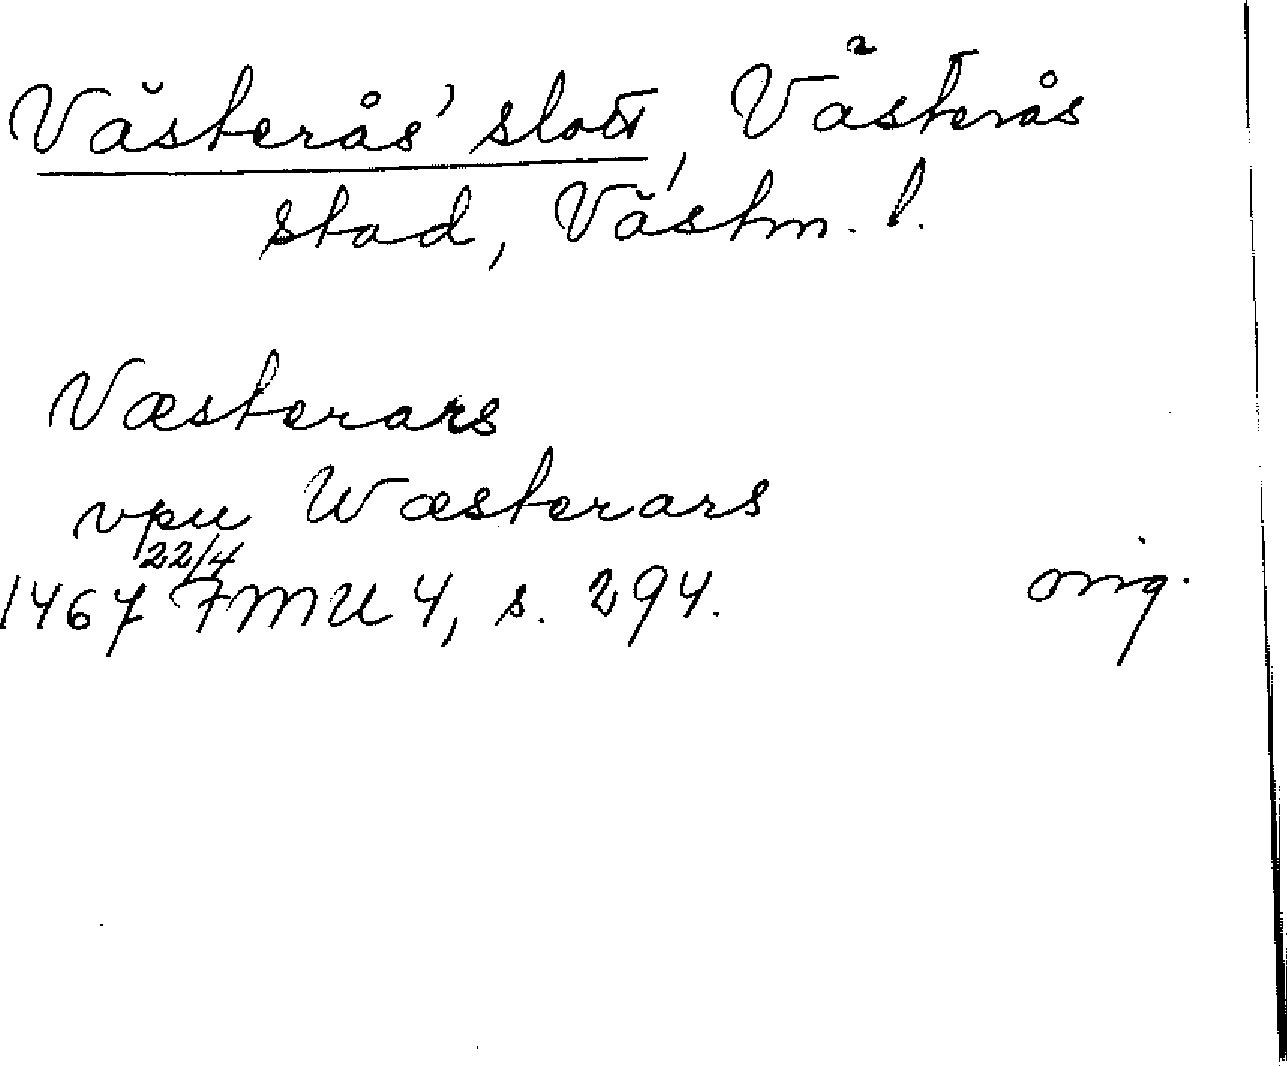 Västerås' slott, Västerås
stad, Västm. l.
Væsterars
vpu Wæsterars
1467 22/4 FMU 4, s. 294. orig.